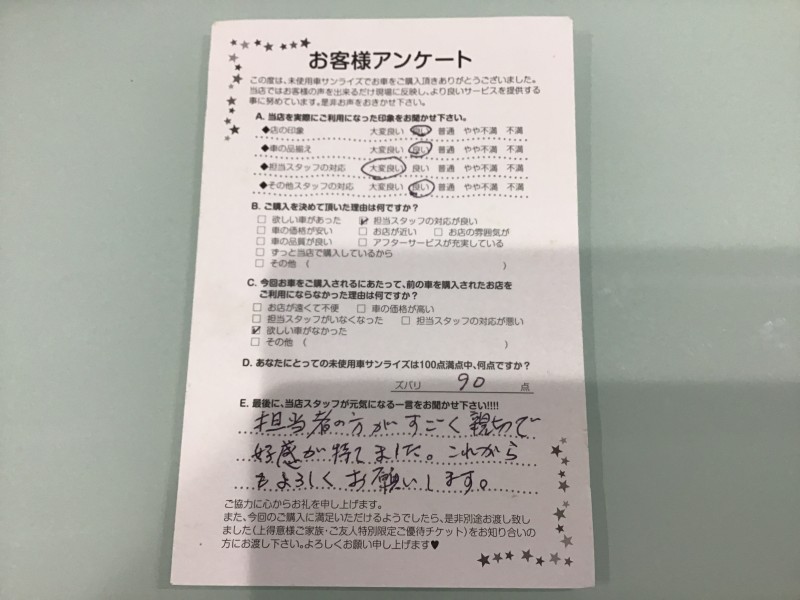 お客様アンケート
この度は、未使用車サンライズでお車をご購入頂きありがとうございました。
当店ではお客様の声を出来るだけ現場に反映し、より良いサービスを提供する
事に努めています。是非お声をおきかせ下さい。
A. 当店を実際にご利用になった印象をお聞かせ下さい。
◆店の印象 大変良い 良い 普通 やや不満 不満
◆車の品揃え 大変良い 良い 普通 やや不満 不満
◆担当スタッフの対応 大変良い 良い 普通 やや不満 不満
◆その他スタッフの対応 大変良い 良い 普通 やや不満 不満
B. ご購入を決めて頂いた理由は何ですか?
□ 欲しい車があった ☑ 担当スタッフの対応が良い
□ 車の価格が安い □ お店が近い □ お店の雰囲気が
□ 車の品質が良い □ アフターサービスが充実している
□ ずっと当店で購入しているから
□ その他 ( )
C. 今回お車をご購入されるにあたって、前の車を購入されたお店を
ご利用にならなかった理由は何ですか?
□ お店が遠くて不便 □ 車の価格が高い
□ 担当スタッフがいなくなった □ 担当スタッフの対応が悪い
☑ 欲しい車がなかった
□ その他 ( )
D. あなたにとっての未使用車サンライズは100点満点中、何点ですか?
ズバリ 90 点
E. 最後に、当店スタッフが元気になる一言をお聞かせ下さい!!!!
担当者の方がすごく親切で
好感が持てました。これから
もよろしくお願いします。
ご協力に心からお礼を申し上げます。
また、今回のご購入に満足いただけるようでしたら、是非別途お渡し致し
ました(上得意様ご家族・ご友人特別限定ご優待チケット)をお知り合いの
方にお渡し下さい。よろしくお願い申し上げます♥